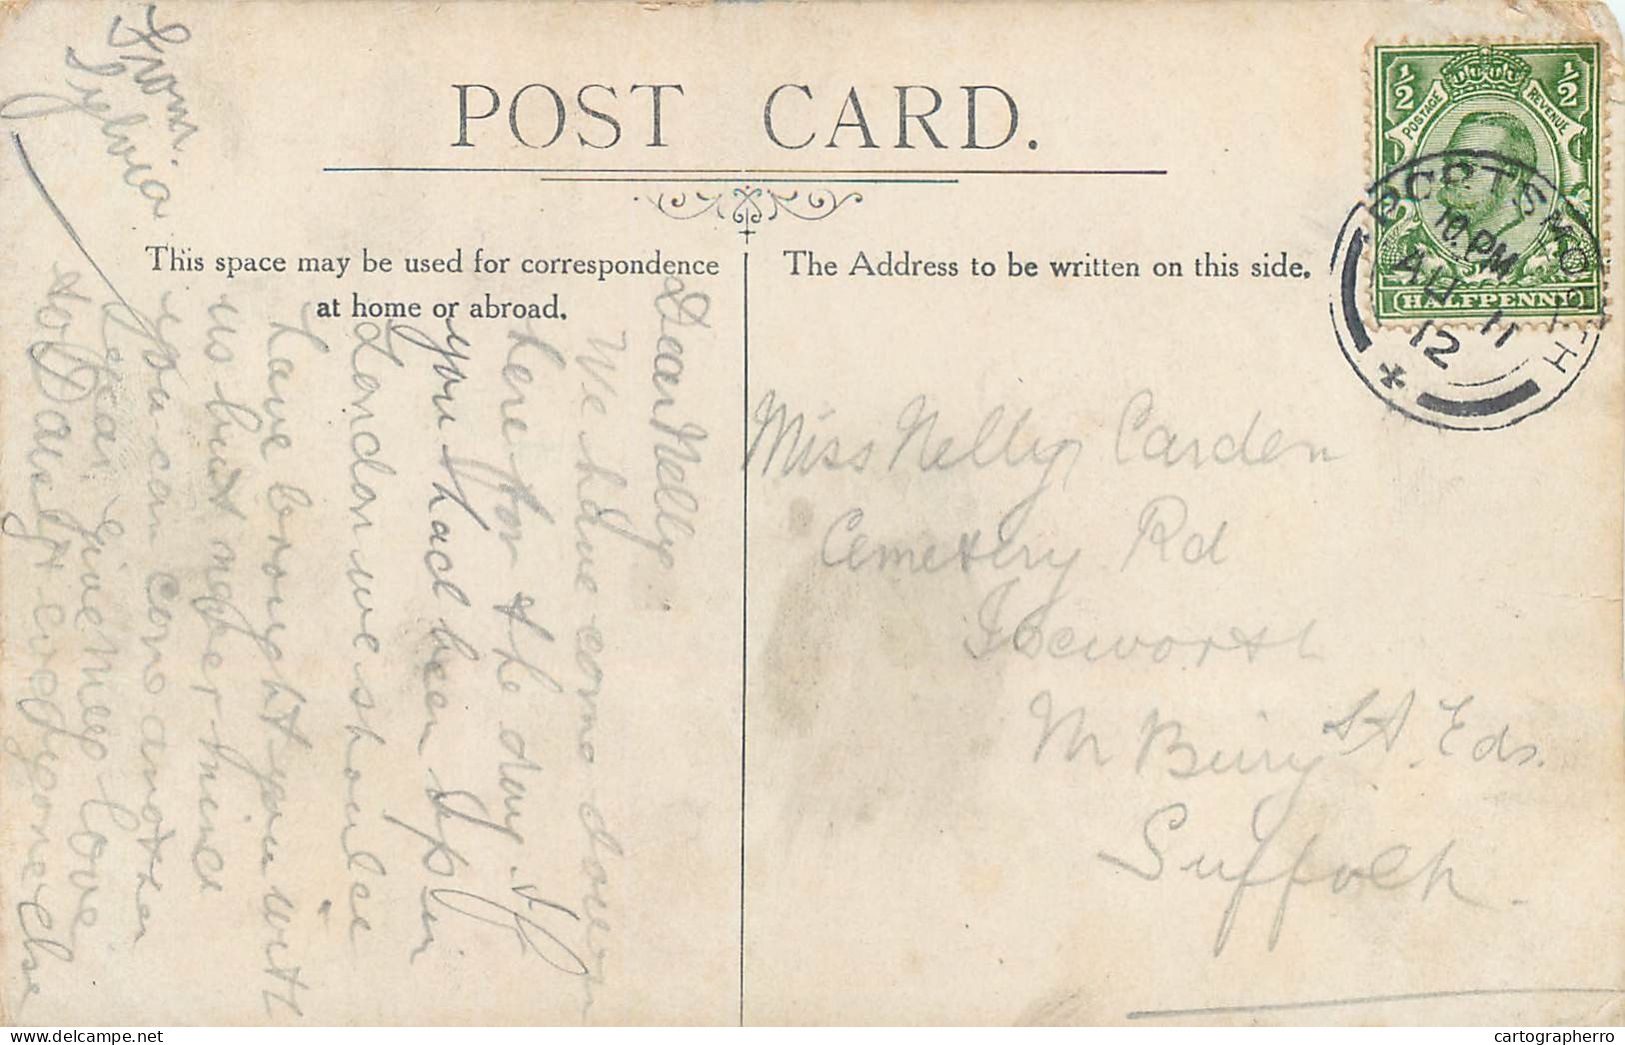 POST CARD.
This space may be used for correspondence
at home or abroad.
The Address to be written on this side.
1/2
1/2
POSTAGE
REVENUE
HALFPENNY
PORTSMOUTH
10. PM
AU 11
12
Dear Nelly
We have come down
here for the day. If
you had been up in
London we should
have brought you with
us but never mind
you can come another
year. Give my love
to Daisy & everyone else
From.
Sylvia
Miss Nelly Carden
Cemetery Rd
Ixworth
Nr Bury St. Eds.
Suffolk.
cartographerro